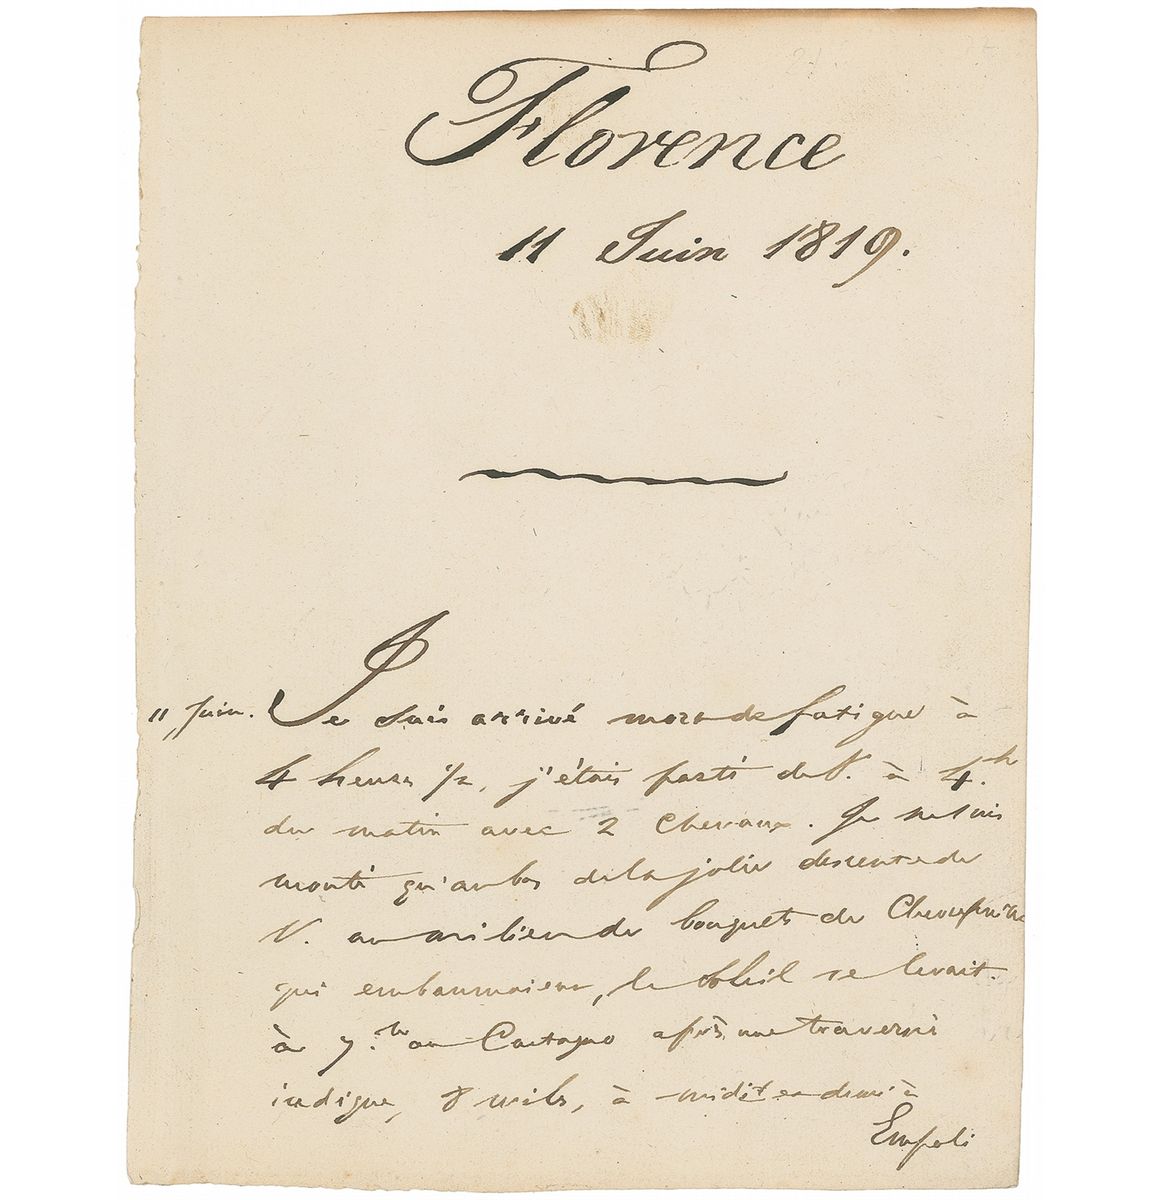 Florence
11 Juin 1819.
11 Juin. Je suis arrivé mort de fatigue à
4 heures 1/2, j'étais parti de V. à 4.h
du matin avec 2 chevaux. Je ne suis
monté qu'au bas de la jolie descente de
V. au milieu de bouquets de Chevrefeuille
qui embaumaient, le soleil se levait.
à 7.h au Castagno après une traversée
indigne, 8 mils, à midi et demi à
Empoli